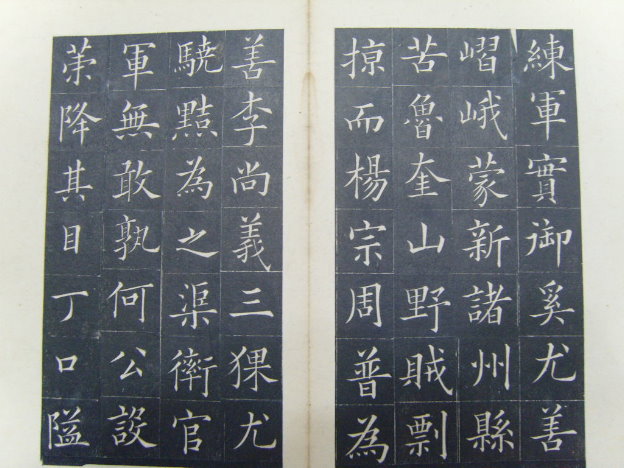 練軍實御奚尤善
嶍峨蒙新諸州縣
苦魯奎山野賊剽
掠而楊宗周普為
善李尚義三猓尤
驍黠為之渠衛官
軍無敢孰何公設
策降其目丁口隘